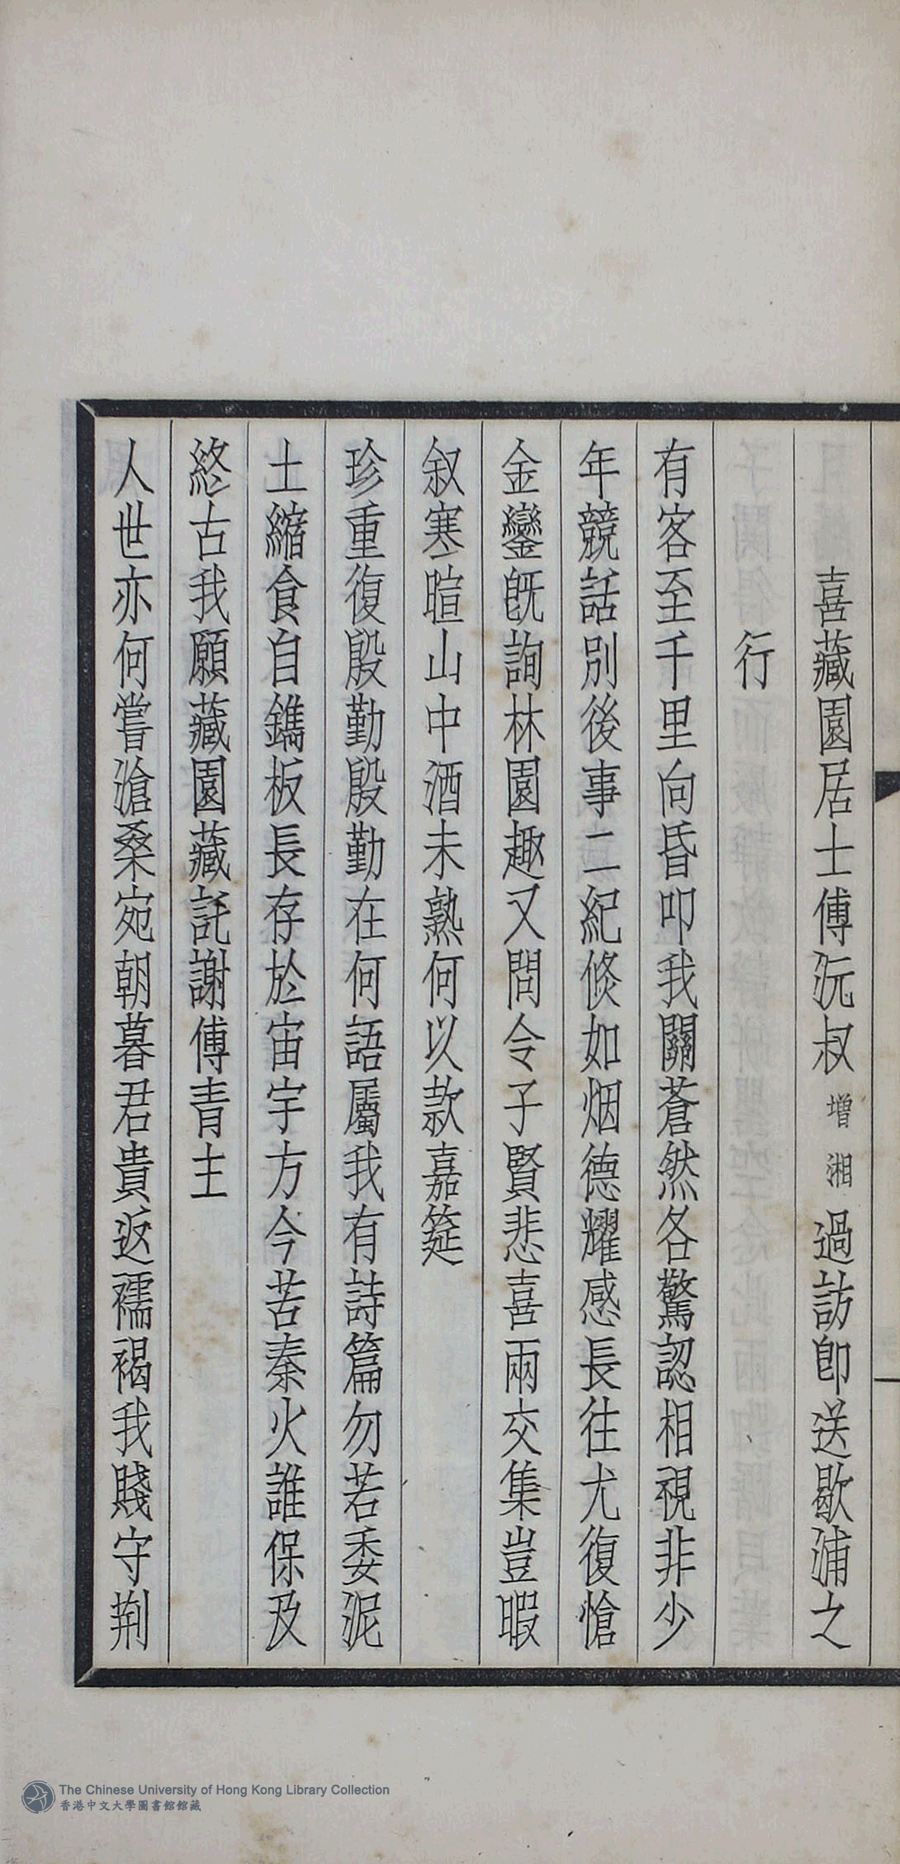 喜藏園居士傅沅叔增湘過訪即送歇浦之
行
有客至千里向昏叩我關蒼然各驚認相視非少
年競話別後事二紀倐如烟德耀感長往尤復愴
金鑾旣詢林園趣又問令子賢悲喜兩交集豈暇
叙寒暄山中酒未熟何以款嘉筵
珍重復殷勤殷勤在何語屬我有詩篇勿若委泥
土縮食自鐫板長存於宙宇方今苦秦火誰保及
終古我願藏園藏託謝傅青主
人世亦何嘗滄桑宛朝暮君貴返襦褐我賤守荆
The Chinese University of Hong Kong Library Collection
香港中文大學圖書館館藏